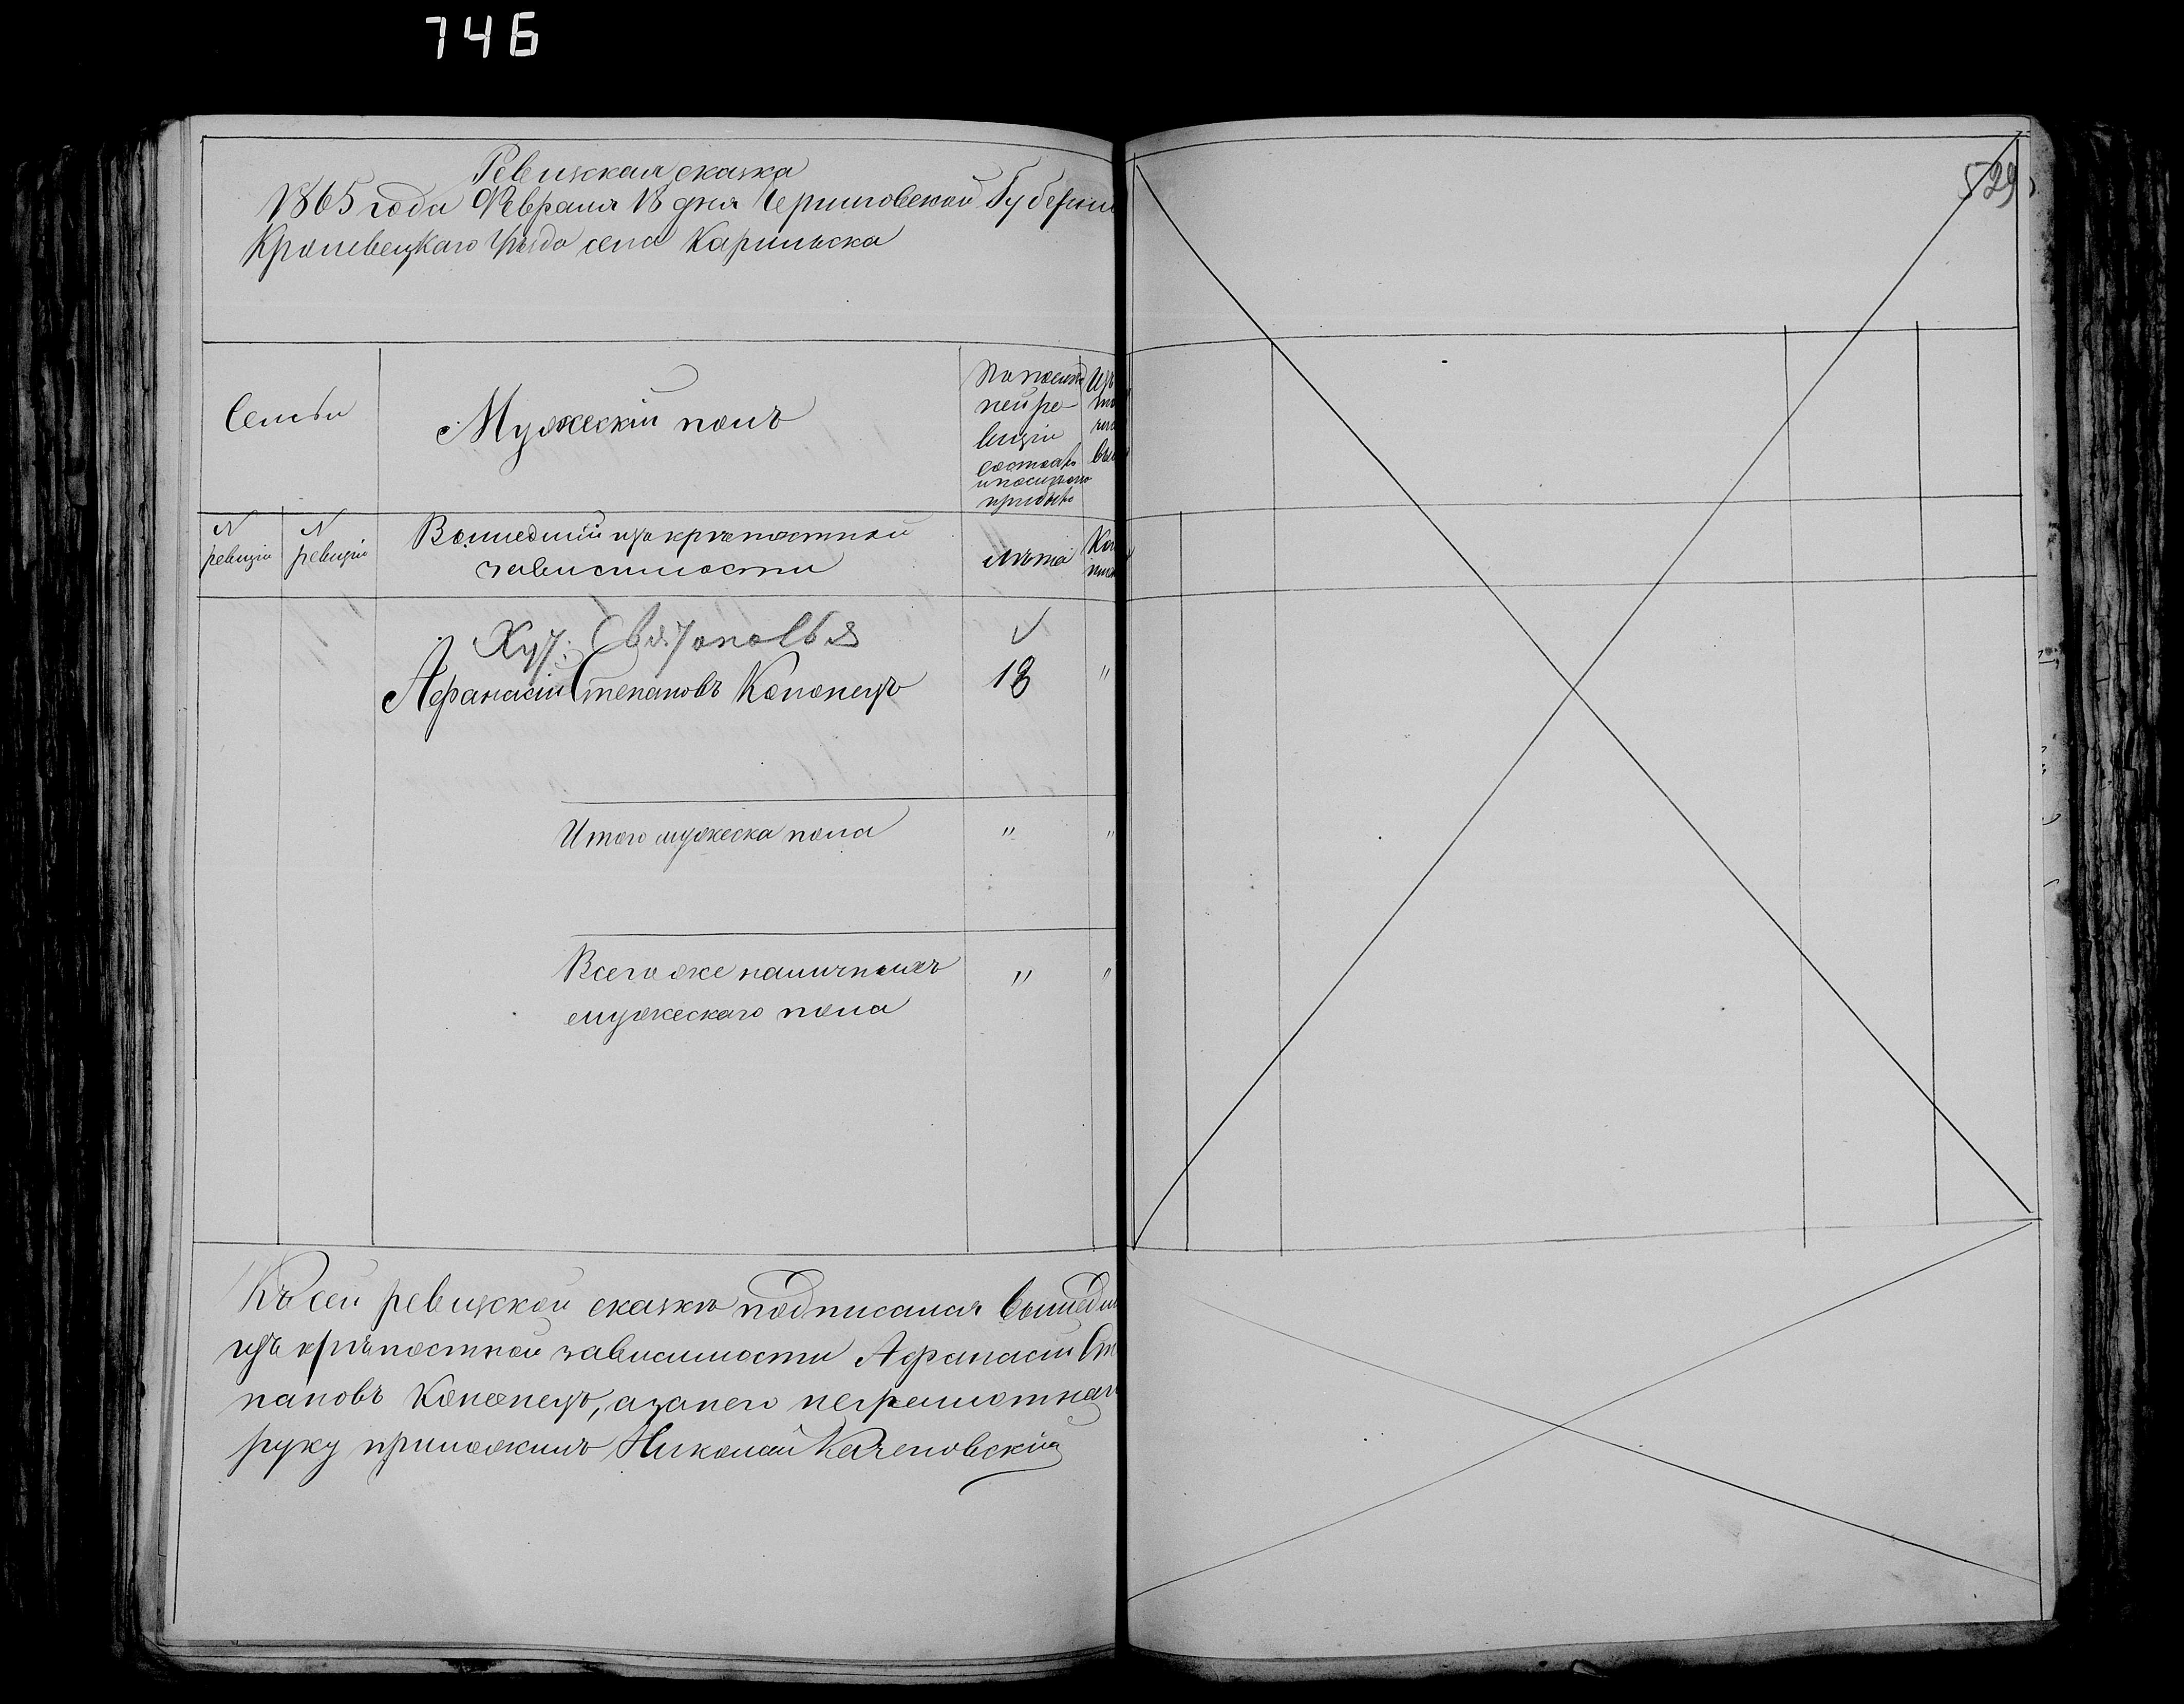 746
Ревизская сказка
1865 года Февраля 18 дня Черниговской Губерни
Кролевецкаго Уѣзда села Карильска
529
Семьи
Мужескій полъ
По послѣд
ней ре-
визіи
состоялъ
и послѣ того
прибыло
Изъ
N
ревизіи
N
ревизіи
Вышедшій изъ крѣпостной
зависимости
лѣта
Хут. Святополья
Афанасій Степановъ Кононецъ
18
"
Итого мужеска пола
"
"
Всего же наличныхъ
мужескаго пола
"
"
Къ сей ревизской сказкѣ подписался вышедш
изъ крѣпостной зависимости Афанасій Сте
пановъ Кононецъ, а за него неграмотнаго
руку приложилъ Николай Каченовскій